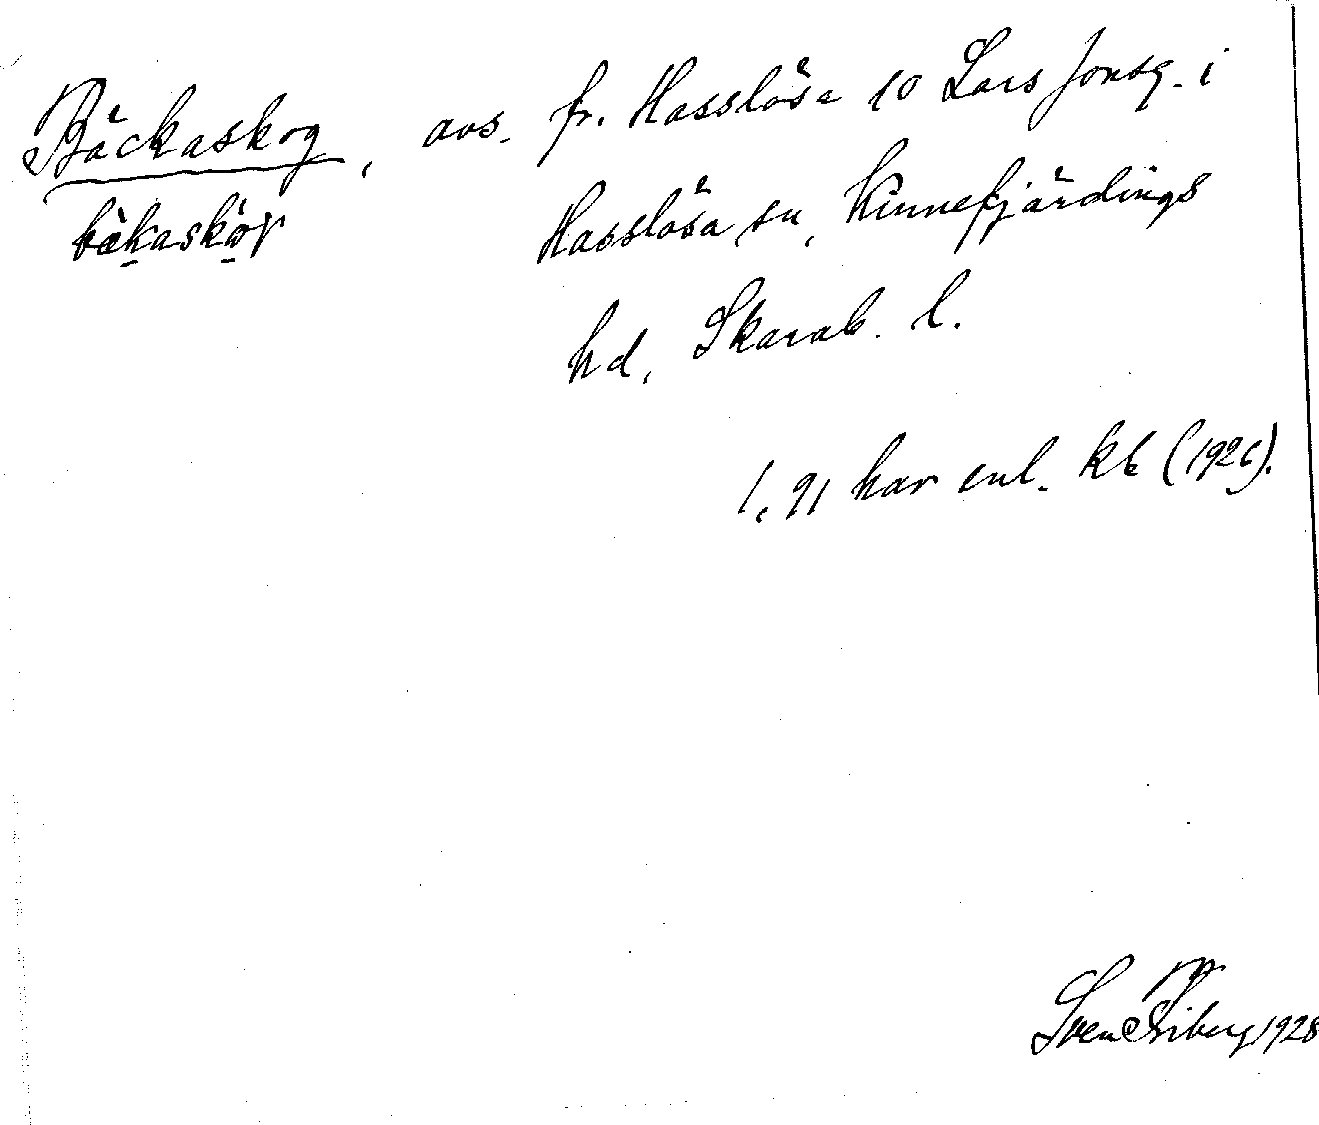 Bäckaskog, avs. fr. Hasslösa 10 Lars Jonsg. i
bäkaskòg Hasslösa sn, Kinnefjärdings
hd, Skarab. l.
1,91 har enl. kb (1926).
Sven Friberg 1928